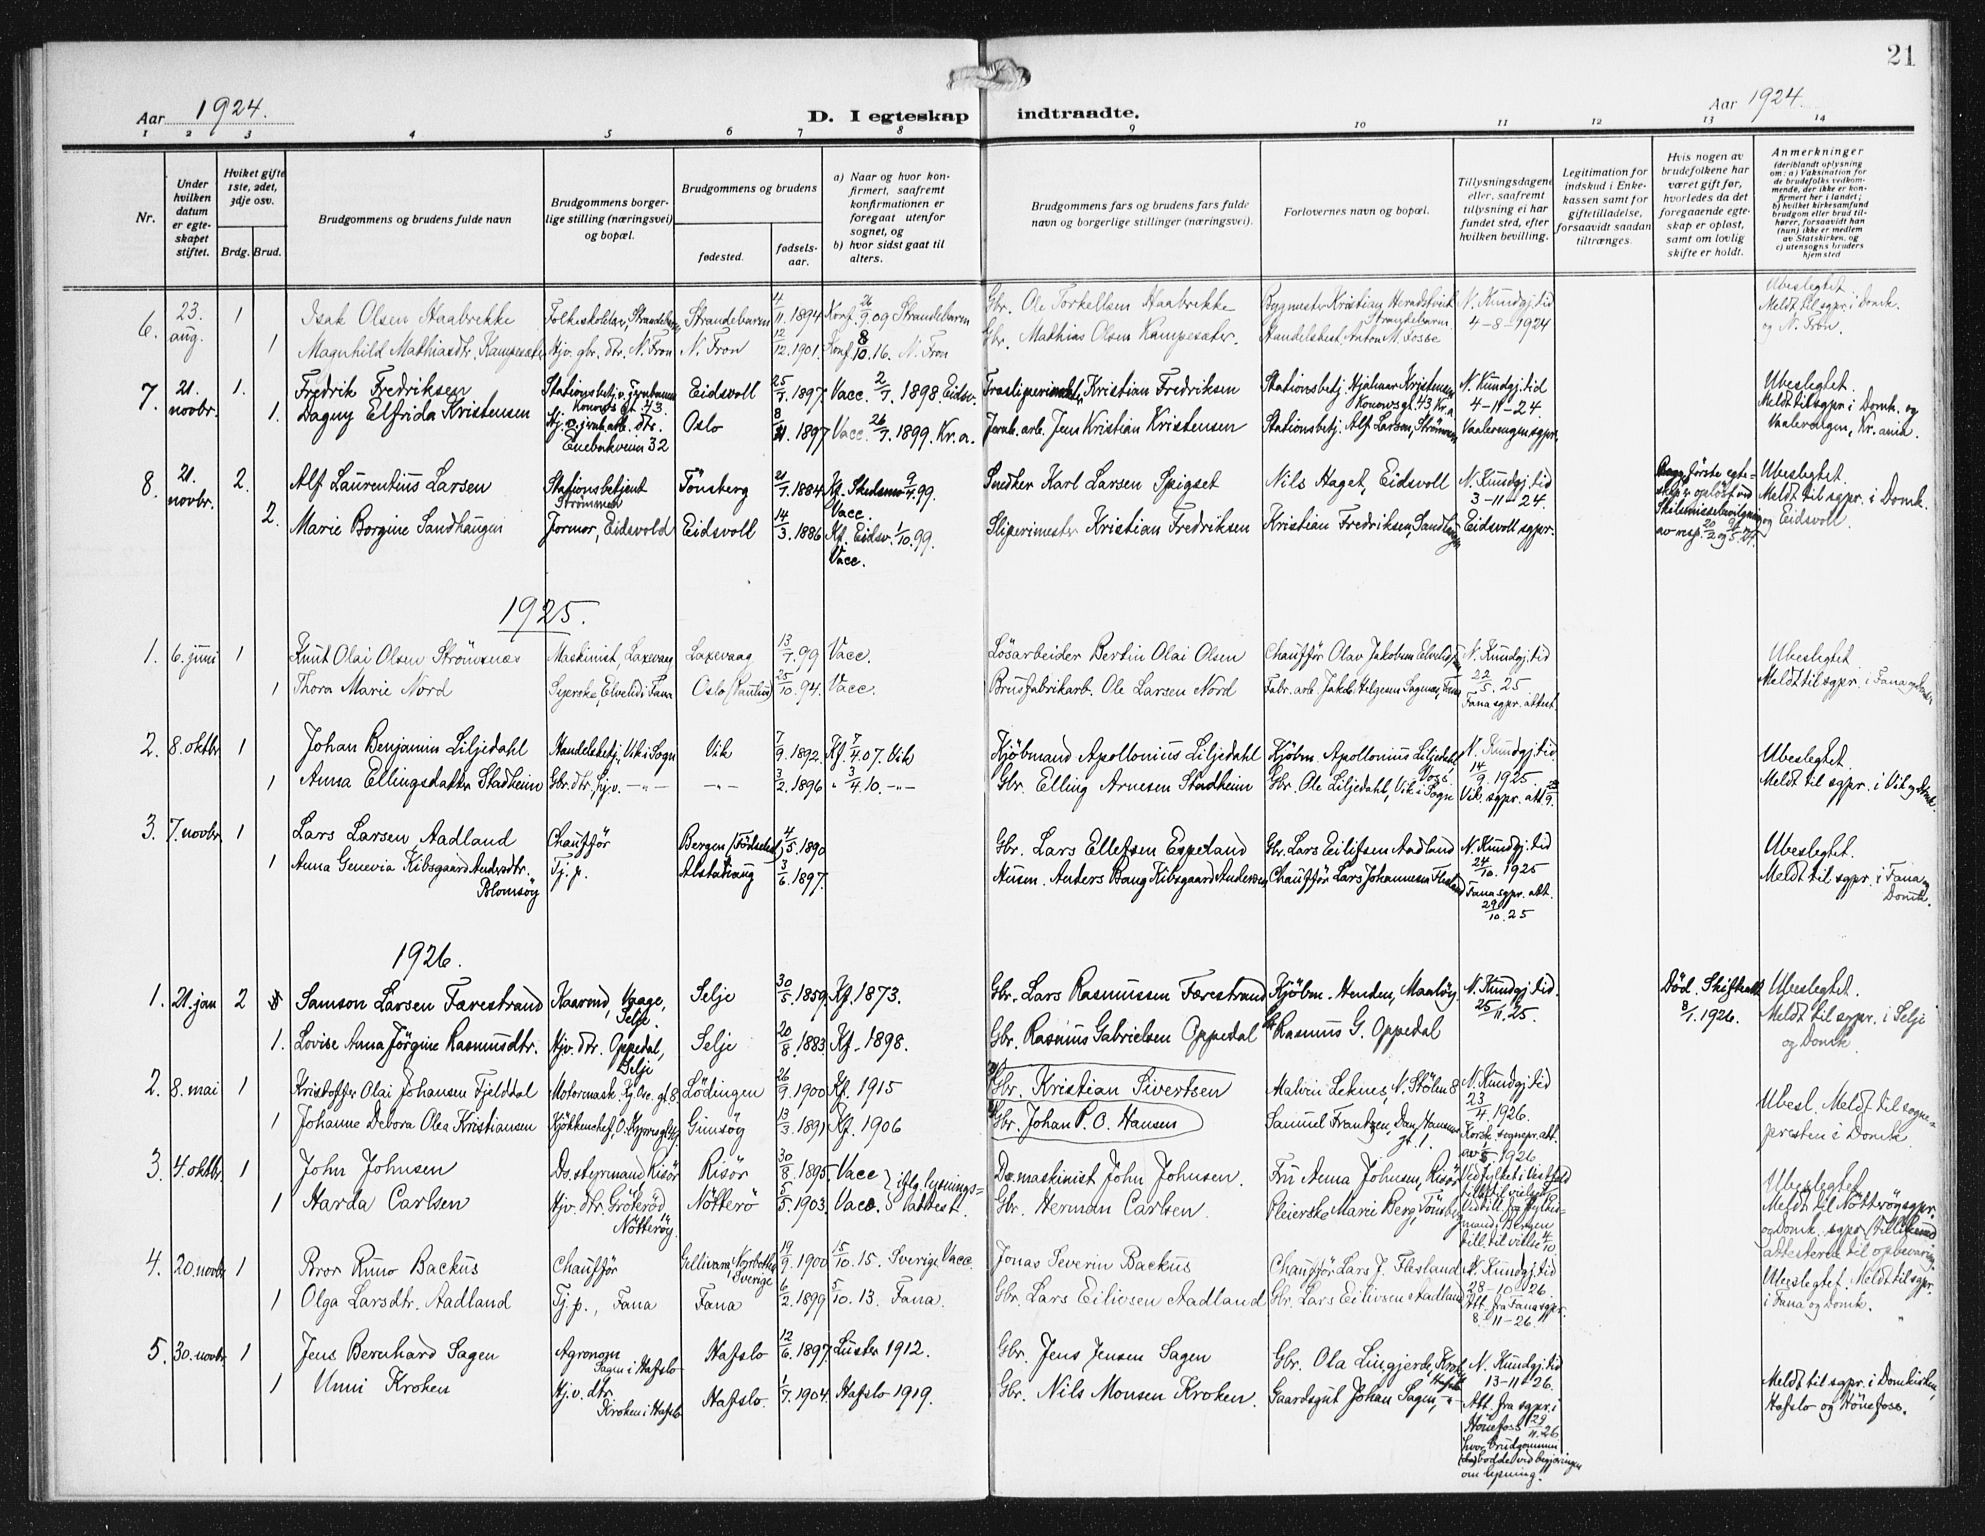 21
Aar 1924. D. I egteskap indtraadte. Aar 1924.
1 2 3 4 5 6 7 8 9 10 11 12 13 14
Nr.
Under hvilken datum er egteskapet stiftet.
Hvilket gifte 1ste, 2det, 3dje osv.
Brdg. Brud.
Brudgommens og brudens fulde navn
Brudgommens borgerlige stilling (næringsvei) og bopæl.
Brudgommens og brudens
fødested.
fødselsaar.
a) Naar og hvor konfirmert, saafremt konfirmationen er foregaat utenfor sognet, og
b) hvor sidst gaat til alters.
Brudgommens fars og brudens fars fulde navn og borgerlige stillinger (næringsvei).
Forlovernes navn og bopæl.
Tillysningsdagene eller, saafremt tillysning ei har fundet sted, efter hvilken bevilling.
Legitimation for indskud i Enkekassen samt for giftetilladelse, forsaavidt saadan tiltrænges.
Hvis nogen av brudefolkene har været gift før, hvorledes da det foregaaende egteskap er opløst, samt om lovlig skifte er holdt.
Anmerkninger (deriblandt oplysning om: a) Vaksination for de brudefolks vedkommende, der ikke er konfirmert her i landet; b) hvilket kirkesamfund brudgom eller brud tilhører, forsaavidt han (hun) ikke er medlem av Statskirken, og c) utensogns bruders hjemsted
6. 23. aug. 1 Isak Olsen Haabrekke Folkeskolelær., Strandebarm Strandebarm 4/11.1894 Konf. 26/9.09 Strandebarm Gbr. Ole Torkellsen Haabrekke Bygmester Kristian Strandebarm N. Kundgj. tid 4-8-1924 Ubeslegtet Meldt til sgpr. i Domk. og N. Fron.
1 Magnhild Mathiasdtr. Kampesæter Hjv. gbr. dtr. N. Fron N. Fron 12/12.1901 Konf. 8/10.16. N. Fron Gbr. Mathias Olsen Kampesæter. Handelsbest. Anton M. Fosse
7. 21. novbr. 1. Fredrik Fredriksen Stationsbetj. v. jernbanen Konowsgt. 43. Eidsvoll 25/7.1897 Vacc. 2/7.1898. Eidsv. Kristian Fredriksen Stationsbetj. Hjalmar Kristensen Konowsgt. 43 Kr.a N. Kundgj. tid 4-11-24. Ubeslegtet. Meldt til sgpr. i Domk. og Vaalerengen, Kr.ania.
1. Dagny Elfrida Kristensen Hj. v. jernb.arb. dtr. Enebakveien 32 Oslo 8/11.1897 Vacc. 26/7.1899. Kr.a. Jernb. arb. Jens Kristian Kristensen Stationsbetj. Alf Larsen, Strömmen Vaalerengen sgpr.
8. 21. novbr. 2. Alf Laurentius Larsen Stationsbetjent Strömmen Tönsberg 21/7.1884 Kf. Skedsmo 9/4.99. Vacc. Snedker Karl Larsen Spigset Nils Haget, Eidsvoll N. Kundgj. tid 3-11-24. Begges første egteskap er opløst ved Skilsmissebevilgning av resp. 20/2 og 9/5.24. Ubeslegtet Meldt til sgpr. i Domk. og Eidsvoll.
2. Marie Borgine Sandhaugen Jormor, Eidsvold Eidsvoll 14/3.1886 Kf. Eidsv. 1/10.99. Vacc. Sliperimestr. Kristian Fredriksen Kristian Fredriksen, Sandhaugen Eidsvoll sgpr.
1925.
1. 6. juni 1 Knut Olai Olsen Strömsnes Maskinist, Laxevaag Laxevaag 13/7.99 Vacc. Lösarbeider Bertin Olai Olsen Chauffør Olav Jakobsen Elvelid, N. Kundgj. tid 22/5.25 Ubeslegtet Meldt til sgpr. i Fana og Domk.
1 Thora Marie Nord Syerske, Elvelid i Fana Oslo (Paulus) 25/10.94. Vacc. Brusfabrikarb. Ole Larsen Nord Fabr. arb. Jakob Helgesen Fana sgpr. attest.
2. 8. oktbr 1 Johan Benjamin Liljedahl Handelsbetj., Vik i Sogn Vik 7/9.1892. Kf. 7/4.07. Vik Kjöbmand Apollonius Liljedahl Kjöbm. Apollonius Liljedahl, Voss N. Kundgj. tid 14/9.1925. Ubeslegtet. Meldt til sgpr. i Vik og Domk.
1 Anna Ellingsdatter Stadheim Gbr. dtr., hj.v. -"- -"- 3/2.1896 " 3/4.10. -"- Gbr. Elling Arnesen Stadheim Gbr. Ole Liljedahl, Vik i Sogn Vik. sgpr. att. 23/9.
3. 7. novbr 1 Lars Larsen Aadland Chauffør Bergen (Fødselsst.) 4/5.1890 Gbr. Lars Ellefsen Espeland Gbr. Lars Eilifsen Aadland N. Kundgj. tid 24/10.1925 Ubeslegtet. Meldt til sgpr. i Fana og Domk.
1 Anna Genevia Kibsgaard Andersdtr. Blomsöy Tj. p. Alstahaug 3/6.1897. Husm. Anders Bang Kibsgaard Andersen Chauffør Lars Johannesen Flesland Fana sgpr. att. 29/10.25
1926.
1. 21. jan 2 Samson Larsen Færestrand Kaarmd, Vaage, Selje. Selje 30/5.1859 Kf. 1873. Gbr. Lars Rasmussen Færestrand Kjöbm. Henden, Maalöy N. Kundgj. tid. 25/11.25. Død. Skifteatt. 8/1.1926. Ubeslegtet. Meldt til sgpr. i Selje og Domk.
1. Lovise Anna Jörgine Rasmusdtr. Hjv. dtr. Oppedal, Selje Selje 20/8.1883 Kf. 1898. Gbr. Rasmus Gabrielsen Oppedal Rasmus G. Oppedal
2. 8. mai 1 Kristoffer Olai Johansen Fjelddal Motormask. Lödingen 26/9.1900 Kf. 1915 Gbr. Kristian Sivertsen Malvin Leknes, N. Stölen 8 N. Kundgj. tid 23/4.1926. Ubesl. Meldt til sognepresten i Domk.
1 Johanne Debora Olea Kristiansen Gimsöy 13/3.1891 Kf. 1906 Gbr. Johan P. O. Hansen Samuel Frantzen, Dan. Hansens gt. 1. Korsk. sognepr. att. av 1926
3. 4. oktbr 1 John Johnsen Ds. styrmand Risör Risör 30/8.1895 Vacc Ds. maskinist John Johnsen. Fru Anna Johnsen, Risör Ubeslegtet Meldt til Nötteröy sgpr. og Domk. sgpr.
1 Harda Carlsen Hjv. dtr. Gröteröd Nötteröy. Nötterö 5/5.1903 Vacc. iflg. lysningsattest. Gbr. Herman Carlsen. Pleierske Marie Berg, Tönsberg
4. 20. novbr 1 Bror Runo Backus Chauffør Gellivara, Norbotten Sverige 19/9.1900 15/10.15. Sverige. Vacc. Jonas Severin Backus Chauffør Lars J. Flesland N. Kundgj. tid 28-10-26. Ubeslegtet. Meldt til sgpr. i Fana og Domk.
1 Olga Larsdtr. Aadland Tj. p., Fana Fana 6/2.1899 5/10.13. Fana. Gbr. Lars Eilivsen Aadland Gbr. Lars Eilivsen Aadland Att. fra Fana sgpr. 8-11-26.
5. 30. novbr 1 Jens Bernhard Sagen Agronom Sagen i Hafslo Hafslo 12/6.1897. Luster 1912. Gbr. Jens Jensen Sagen Gbr. Ola Lingjerde, Kroken, Hafslo N. Kundgj. tid 13-11-26. Meldt til sgpr. i Domkirken, Hafslo og Hönefoss.
1 Unni Kroken Hj.v. dtr. Kroken i Hafslo Hafslo. 1/7.1904. Hafslo 1919. Gbr. Nils Monsen Kroken. Gaardsgut Johan Sagen, -"- Att. fra sgpr. i Hönefoss 29/11.26. hvor brudgommen bodde ved begjæringen om lysning.